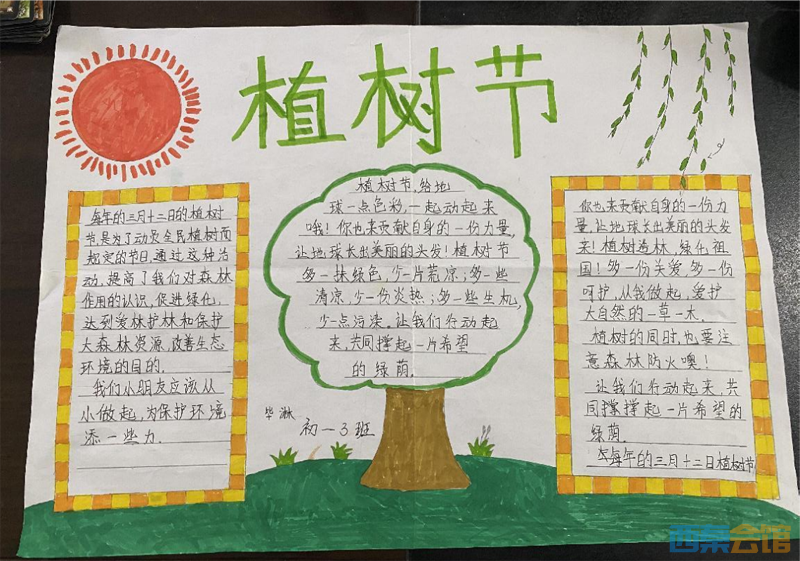 植树节
每年的三月十二日的植树
节是为了动员全民植树而
规定的节日,通过这种活
动,提高了我们对森林
作用的认识,促进绿化,
达到爱林护林和保护
大森林资源,改善生态
环境的目的。
我们小朋友应该从
小做起,为保护环境
添一些力。
植树节,给地
球一点色彩,一起动起来
哦!你也来贡献自身的一份力量,
让地球长出美丽的头发!植树节
多一抹绿色,少一片荒凉;多一些
清凉,少一份炎热;多一些生机,
少一点污染。让我们行动起
来,共同撑起一片希望
的绿荫。
毕
初一3班
你也来贡献自身的一份力
量,让地球长出美丽的头发
来!植树造林,绿化祖
国!多一份关爱,多一份
呵护,从我做起,爱护
大自然的一草一木。
植树的同时,也要注
意森林防火噢!
让我们行动起来,共
同撑撑起一片希望的
绿荫。
每年的三月十二日植树节
西菜会馆